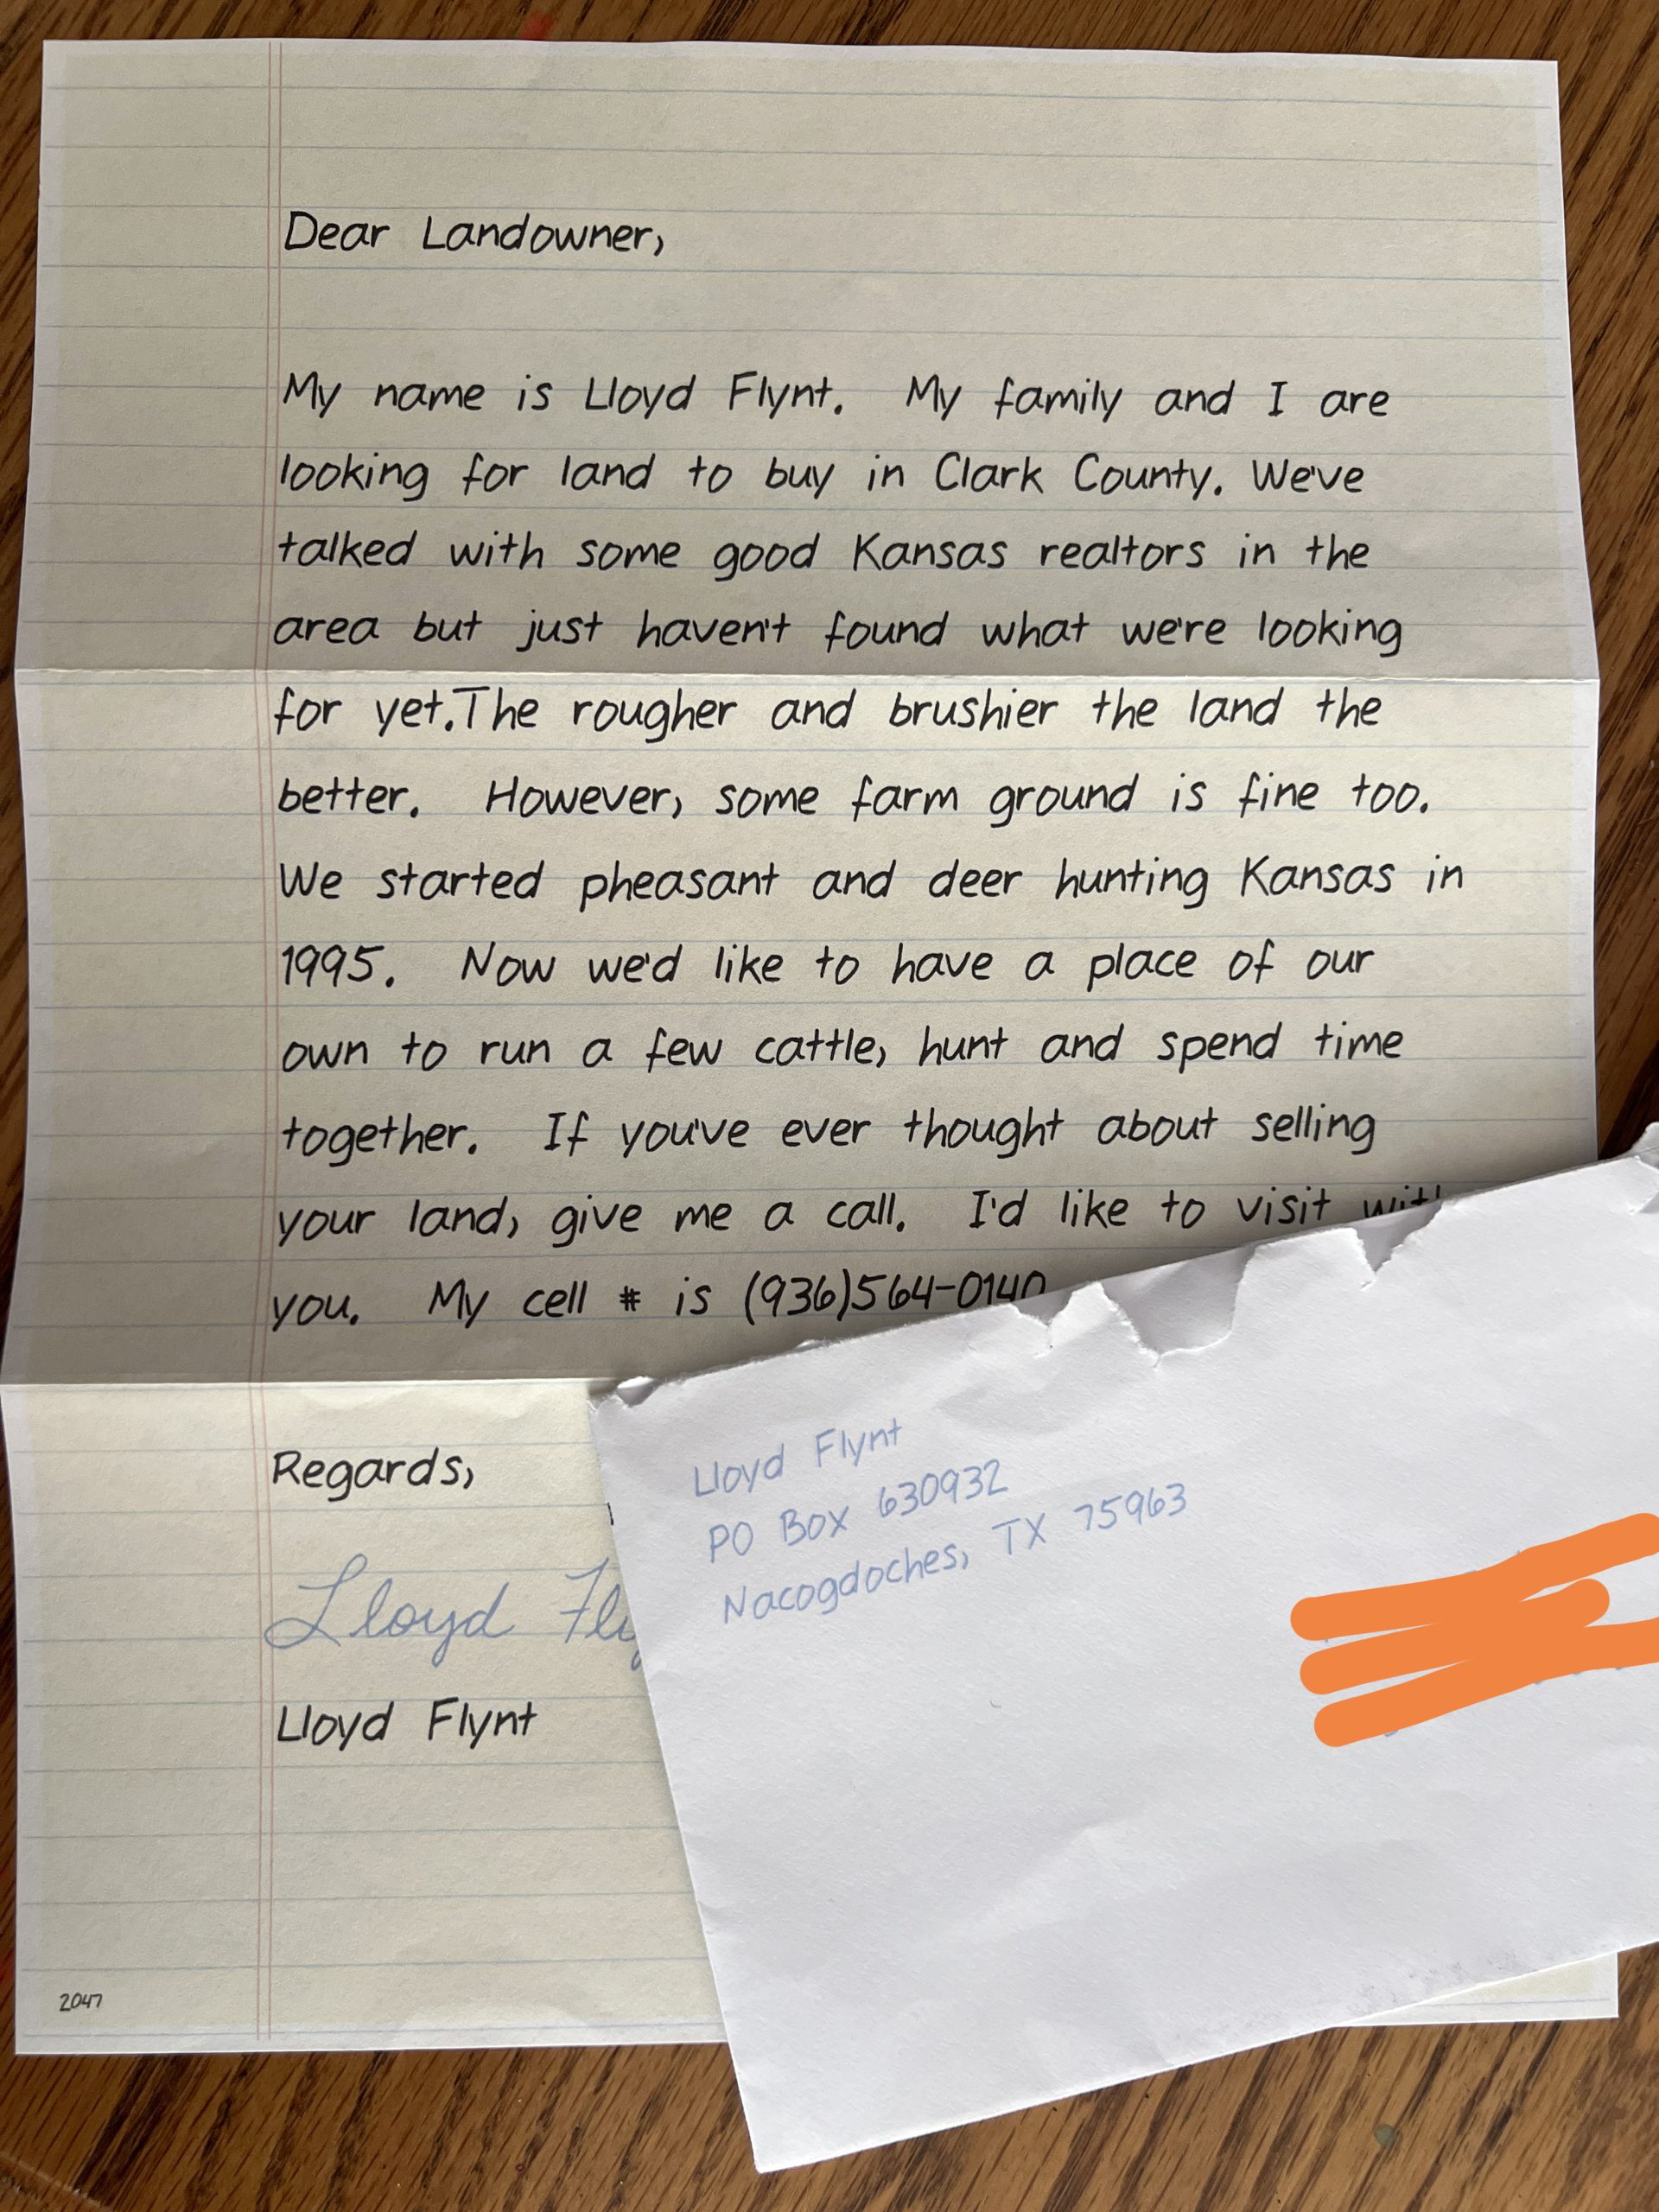 Dear Landowner,
My name is Lloyd Flynt. My family and I are
looking for land to buy in Clark County. We've
talked with some good Kansas realtors in the
area but just haven't found what we're looking
for yet.The rougher and brushier the land the
better. However, some farm ground is fine too.
We started pheasant and deer hunting Kansas in
1995. Now we'd like to have a place of our
own to run a few cattle, hunt and spend time
together. If you've ever thought about selling
your land, give me a call. I'd like to visit with
you. My cell # is (936)564-0140
Regards,
Lloyd
Lloyd Flynt
2047
Lloyd Flynt
PO Box 630932
Nacogdoches, TX 75963